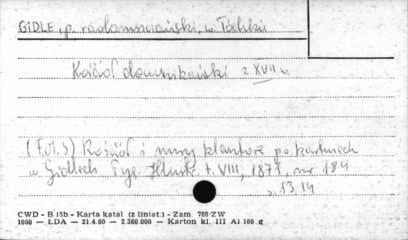 GIDLE, p. radomszczański, w. Polski
Kościół dominikański z XVII w.
(Fot. S) Kościół i mury klasztorne po kartuzach
w Gidlach Tyg. Illustr. t. VIII, 1871, nr 184
s. 13, 14
CWD - B 15b - Karta katal (z liniat.) - Zam 788 ZW
1060 — ŁDA — 21.4.60 — 2.360.000 — Karton kl. III A1 160 g